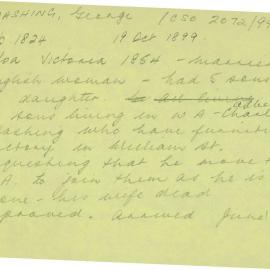 DASHING, George (CSO 2072/99
1824 19 Oct 1899.
Victoria 1854 - married
English woman - had 5 sons
daughter. to all living adlie
sons living in W A - Charl
Dashing who have furnitu
ctory in William St.
questing that he move t
A. to join them as he is
one - his wife dead
proved. Arrived June